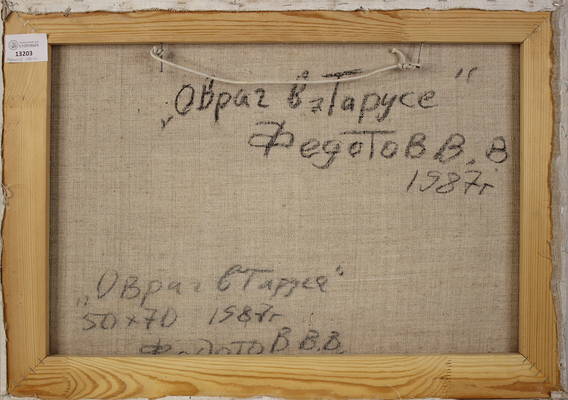 13203
„Овраг в Тарусе“
Федотов В.В
1987г
„Овраг в Тарусе“
50х70 1987г
Федотов В.В.